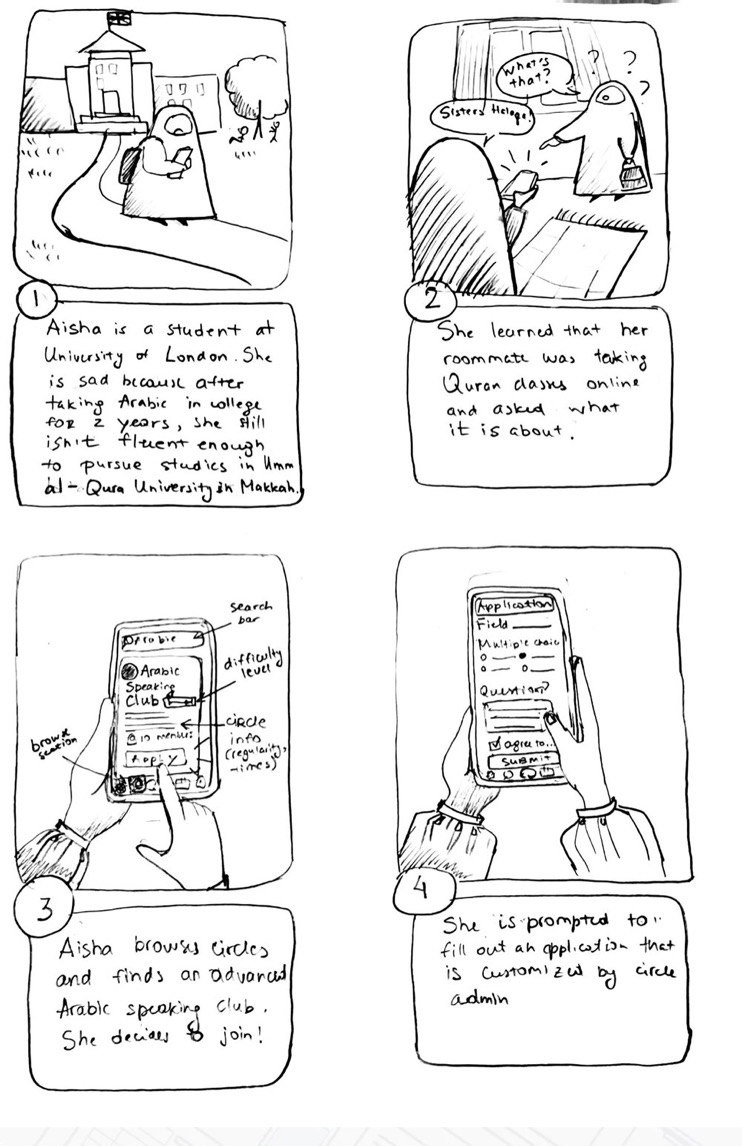 What's
that?
? ? ?
Sisters Halaqa!
1
Aisha is a student at
University of London. She
is sad because after
taking Arabic in college
for 2 years, she still
isn't fluent enough
to pursue studies in Umm
al-Qura University in Makkah.
2
She learned that her
roommate was taking
Quran classes online
and asked what
it is about.
search
bar
Arabic
Speaking
Club
10 members
Apply
difficulty
level
circle
info
(regularity,
times)
browse
section
3
Aisha browses circles
and finds an advanced
Arabic speaking club.
She decides to join!
Application
Field
Multiple choice
Question?
agree to...
SUBMIT
4
She is prompted to
fill out an application that
is customized by circle
admin